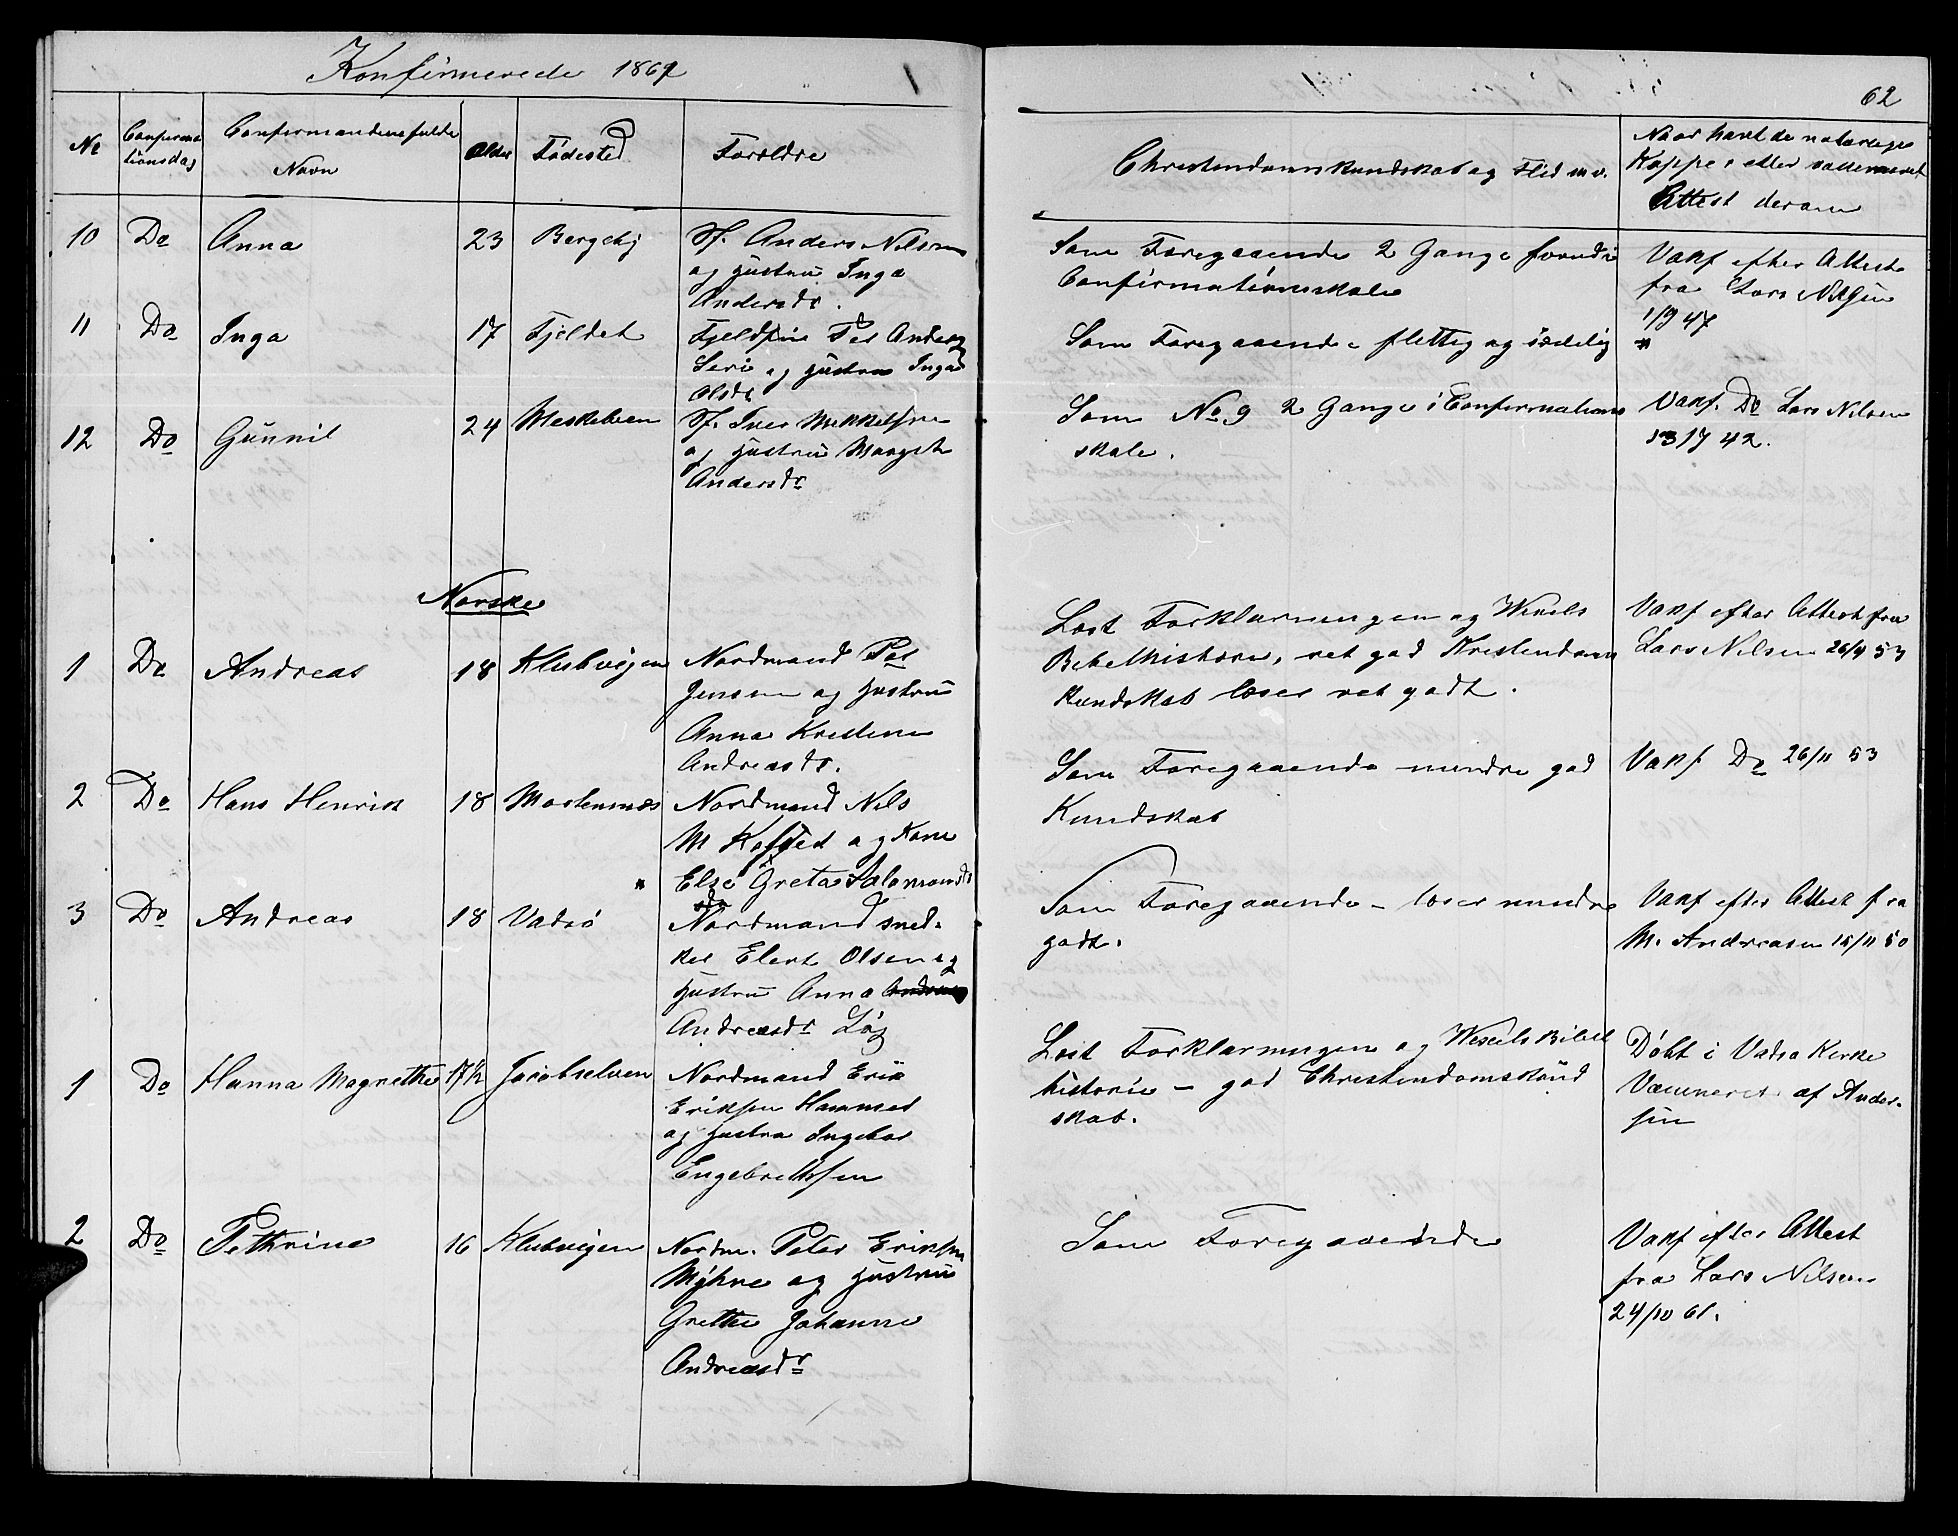 Konfirmerede 1869
62
No
Confirma
tionsdag
Confirmandens fulde
Navn
Alder
Fødested
Forældre
Christendomskundskab og Flid m.v.
Naar havt de naturlige
Kopper eller vaccineret
Attest derom
10 Do Anna 23 Bergeby Sf. Anders Nilsen
og Hustru Inga
Andersdr.
Som Foregaaende 2 Gange
Confirmationsskole
Vakf efter Attest
fra Lars Nilsen
1/9 47
11 Do Inga 17 Fjeldet Fjeldfin Per Anders
og Hustru Inga
Olsdr
Som Foregaaende flittig og sædelig
"
12 Do Gunnil 24 Meskelven Sf. Iver Mikkelsen
og Hustru Margrete
Andersdr
Som No 9 2 Gange i Confirmations
skole.
Vakf. Do Lars Nilsen
42.
Norske
1 Do Andreas 18 Klubvigen Nordmand Per
Jensen og Hustru
Anna Kristine
Andreasdr.
Læst Forklarningen og Wexels
Bibelhistorie, ret god Kristendoms
kundskab læser ret godt.
Vakf efter Attest fra
Lars Nilsen 26/11 53
2 Do Hans Henrik 18 Mortensnæs Nordmand Nils
M Kofoed og Kone
Else Greta Salamonsdr
Som Foregaaende mindre god
Kundskab
Vakf Do 26/11 53
3 Do Andreas 18 Vadsø Nordmand Sned-
ker Elert Olsen og
Hustru Anna
Andreasdr
Som Foregaaende – læser mindre
godt.
Vakf efter Attest fra
M. Andreasen 15/11 50
1 Do Hanna Magrethe 17½ Jacobselven Nordmand Erik
Eriksen Hammer
og Hustru Ingebor
Engebrettsen
Læst Forklarningen og Wexels Bibel
historie – god Christendomskund
skab.
Døbt i Vadsø Kirke
Vaccineret af Ander-
sen
2 Do Pethrine 16 Klubvigen Nordm. Peter Eriksen
Myhre og Hustru
Grethe Johanne
Andreasdr
Som Foregaaende
Vakf efter Attest
fra Lars Nilsen
24/10 61.